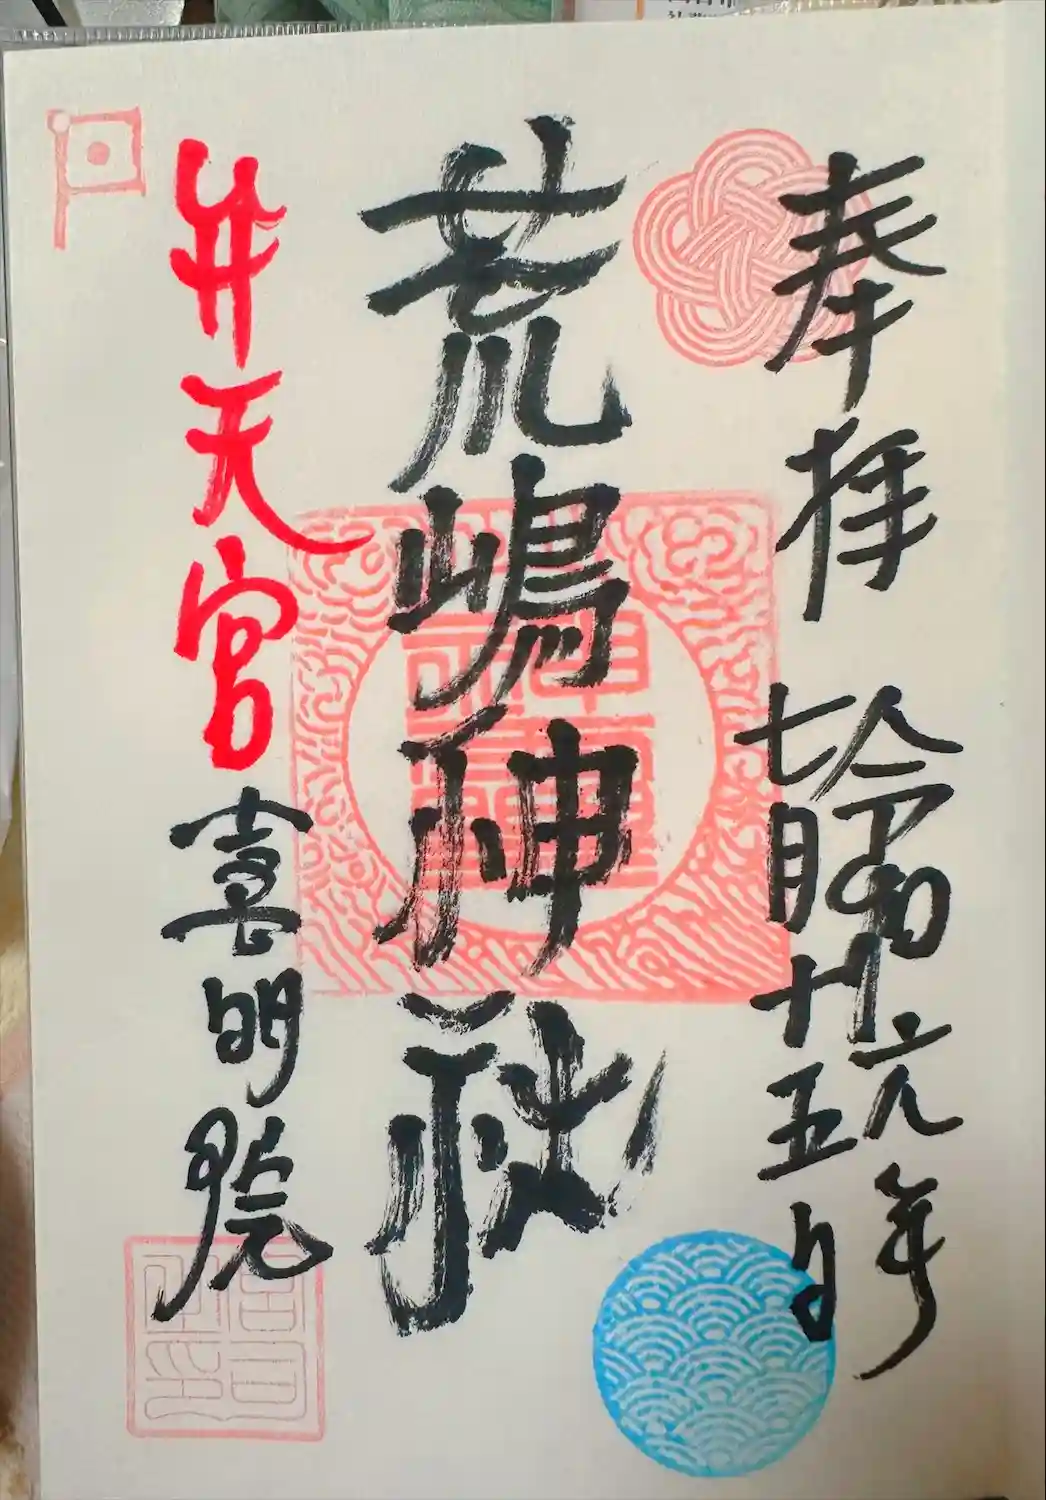 奉拝
令和元年
七月廿五日
荒嶋神社
弁天宮
喜明院